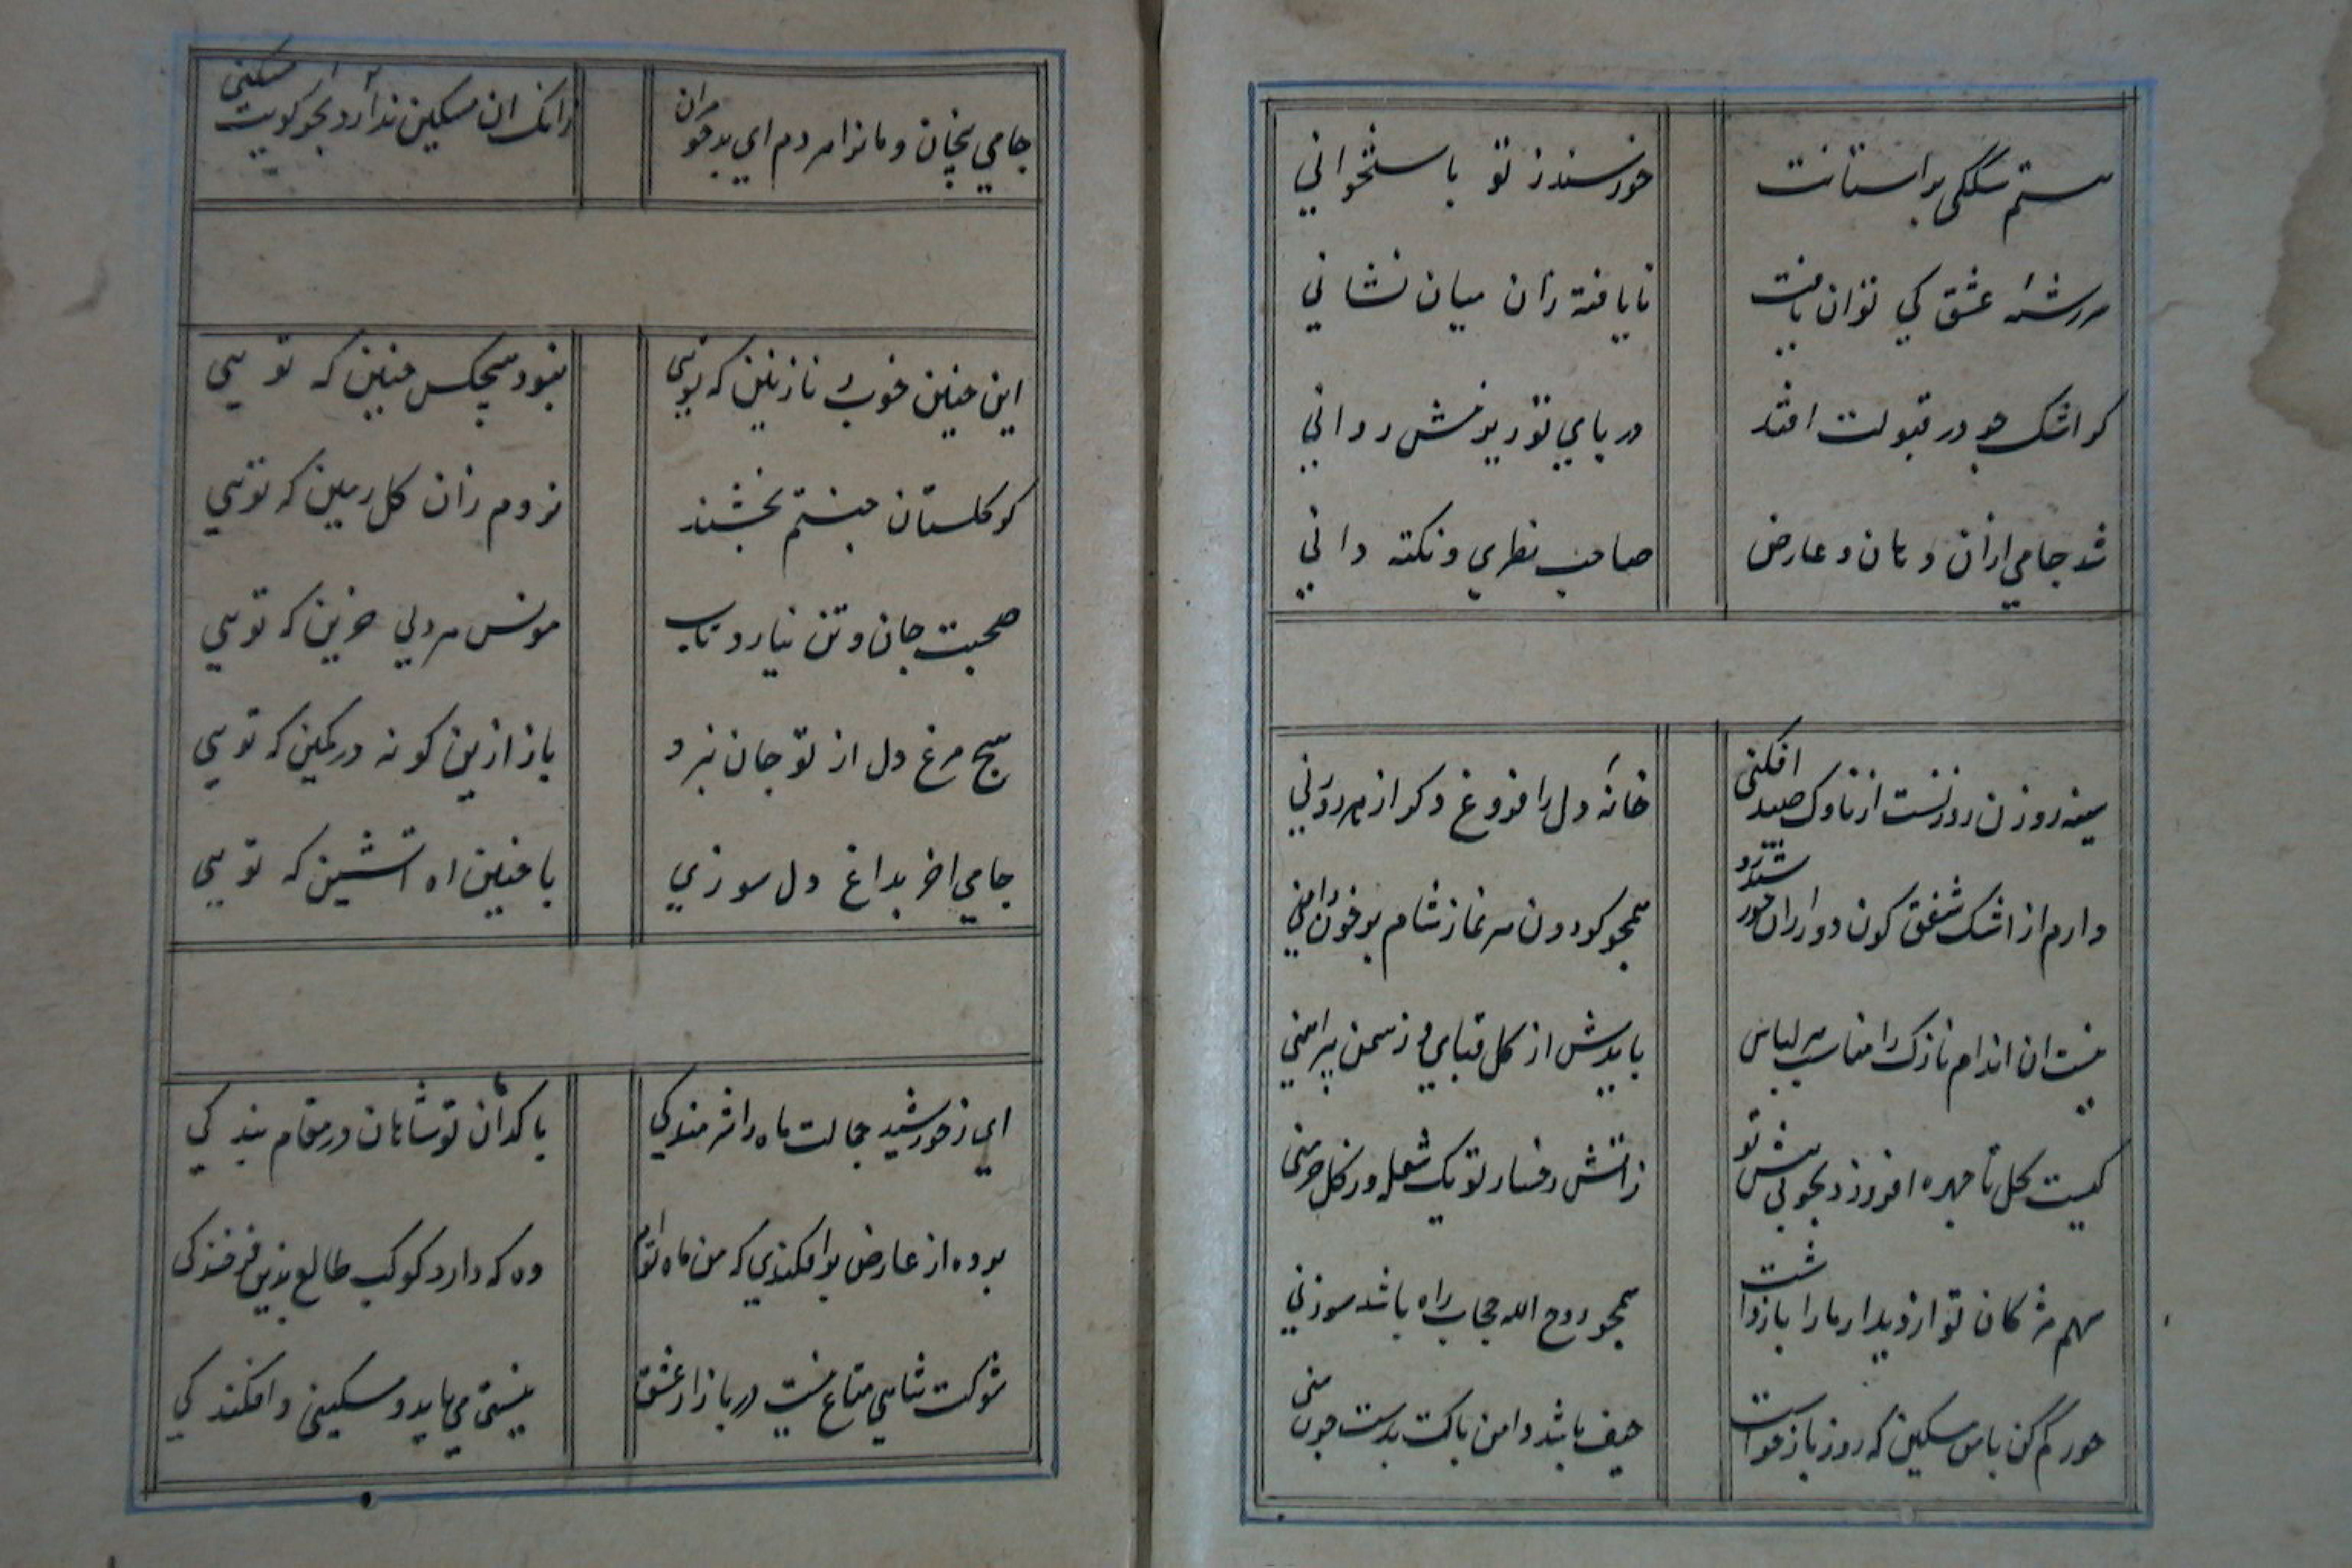 هستم سگکی بر آستانت
خورسند ز تو باستخوانی
سررشتهٔ عشق کی توان یافت
نایافته زان میان نشانی
کر اشک چو در قبولت افتد
در پای تو ریزمش روانی
شد جامی از آن دهان و عارض
صاحب نظری و نکته دانی
سینه روزن روزنست از ناوک صید افکنی
خانهٔ دل را فروغ دکر از هر روزنی
دارم از اشک شفق کون دور از آن خورشید رو
همچو کردون هر نماز شام پر خون دامنی
نیست ان اندام نازک را مناسب هر لباس
بایدش از کل قبایی و ز سمن پیراهنی
کیست کل تا چهره افروزد بخوبی پیش تو
ز آتش رخسار تو یک شعله وز کل خرمنی
سهم مژکان تو از دیدار ما را بازداشت
همچو روح الله حجاب راه باشد سوزنی
جور کم کن با من مسکین که روز بازخواست
حیف باشد دامن پاکت بدست چون منی
جامی بیجان و مانرا مردم ای بدخو مران
زانک ان مسکین ندارد بجز کویت مسکنی
این چنین خوب و نازنین که تویی
نبود هیچکس چنین که تویی
کر کلستان جنتم بخشند
نروم زان کل زمین که تویی
صحبت جان و تن نیارد تاب
مونس هر دلی حزین که تویی
هیچ مرغ دل از تو جان نبرد
باز ازین کونه در کمین که تویی
جامی اخر بداغ دل سوزی
با چنین اه اتشین که تویی
ای ز خورشید جمالت ماه را شرمندکی
با کدایان تو شاهان در مقام بندکی
پرده از عارض برافکندی که من ماه توام
وه که دارد کوکب طالع بدین فرخندکی
شوکت شاهی متاع نیست در بازار عشق
نیستی می باید و مسکینی و افکندکی